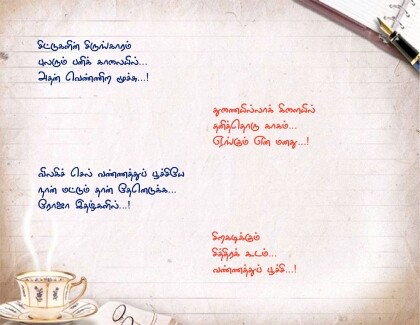 சிட்டுகளின் சிருங்காரம்
புலரும் பனிக் காலையில்...
அதன் வெண்ணிற மூச்சு...!
துணையில்லாக் கிளையில்
தனித்தொரு காகம்...
ஏங்கும் என் மனது...!
விலகிச் செல் வண்ணத்துப் பூச்சியே
நான் மட்டும் தான் தேனெடுக்க...
ரோஜா இதழ்களில்...!
சிறகடிக்கும்
சித்திரக் கூடம்...
வண்ணத்துப் பூச்சி...!